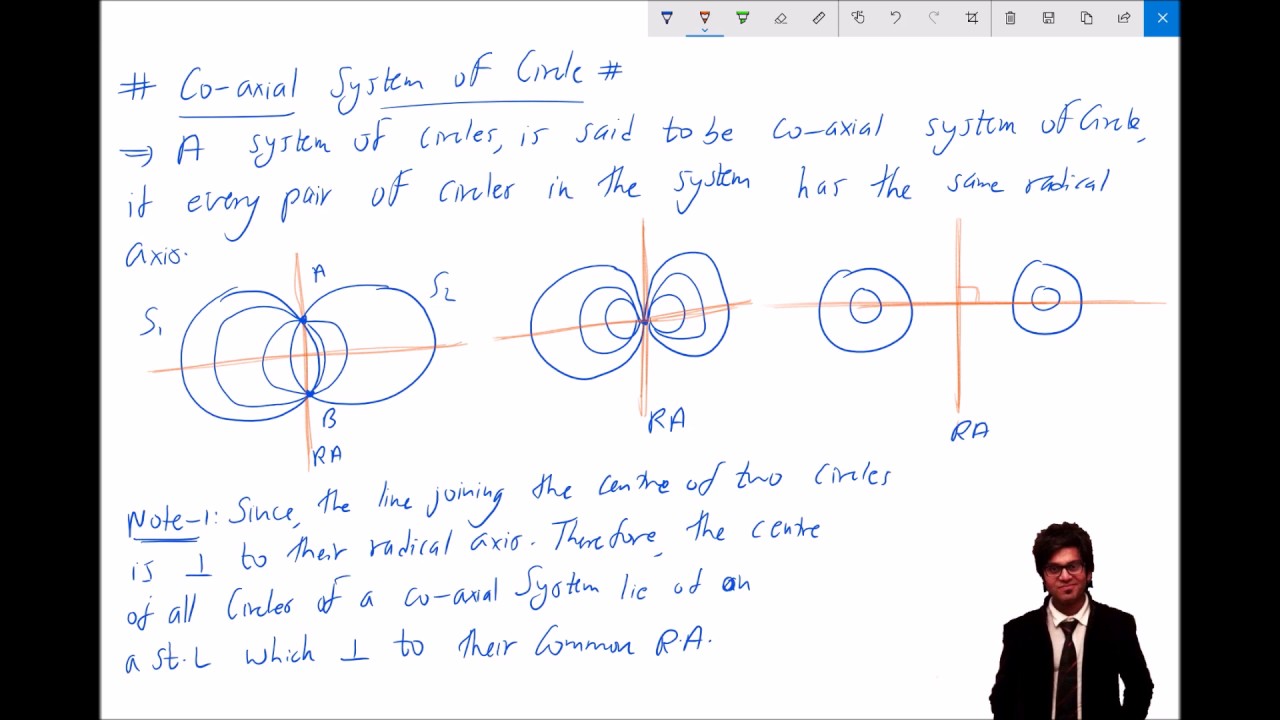 # Co-axial System of Circle #
⇒ A system of circles, is said to be co-axial system of Circle,
if every pair of circles in the system has the same radical
axis.
A
S₁
S₂
B
RA
RA
RA
Note-1: Since, the line joining the centre of two circles
is ⊥ to their radical axis. Therefore, the centre
of all Circles of a co-axial System lie of on
a st. L which ⊥ to their Common R.A.